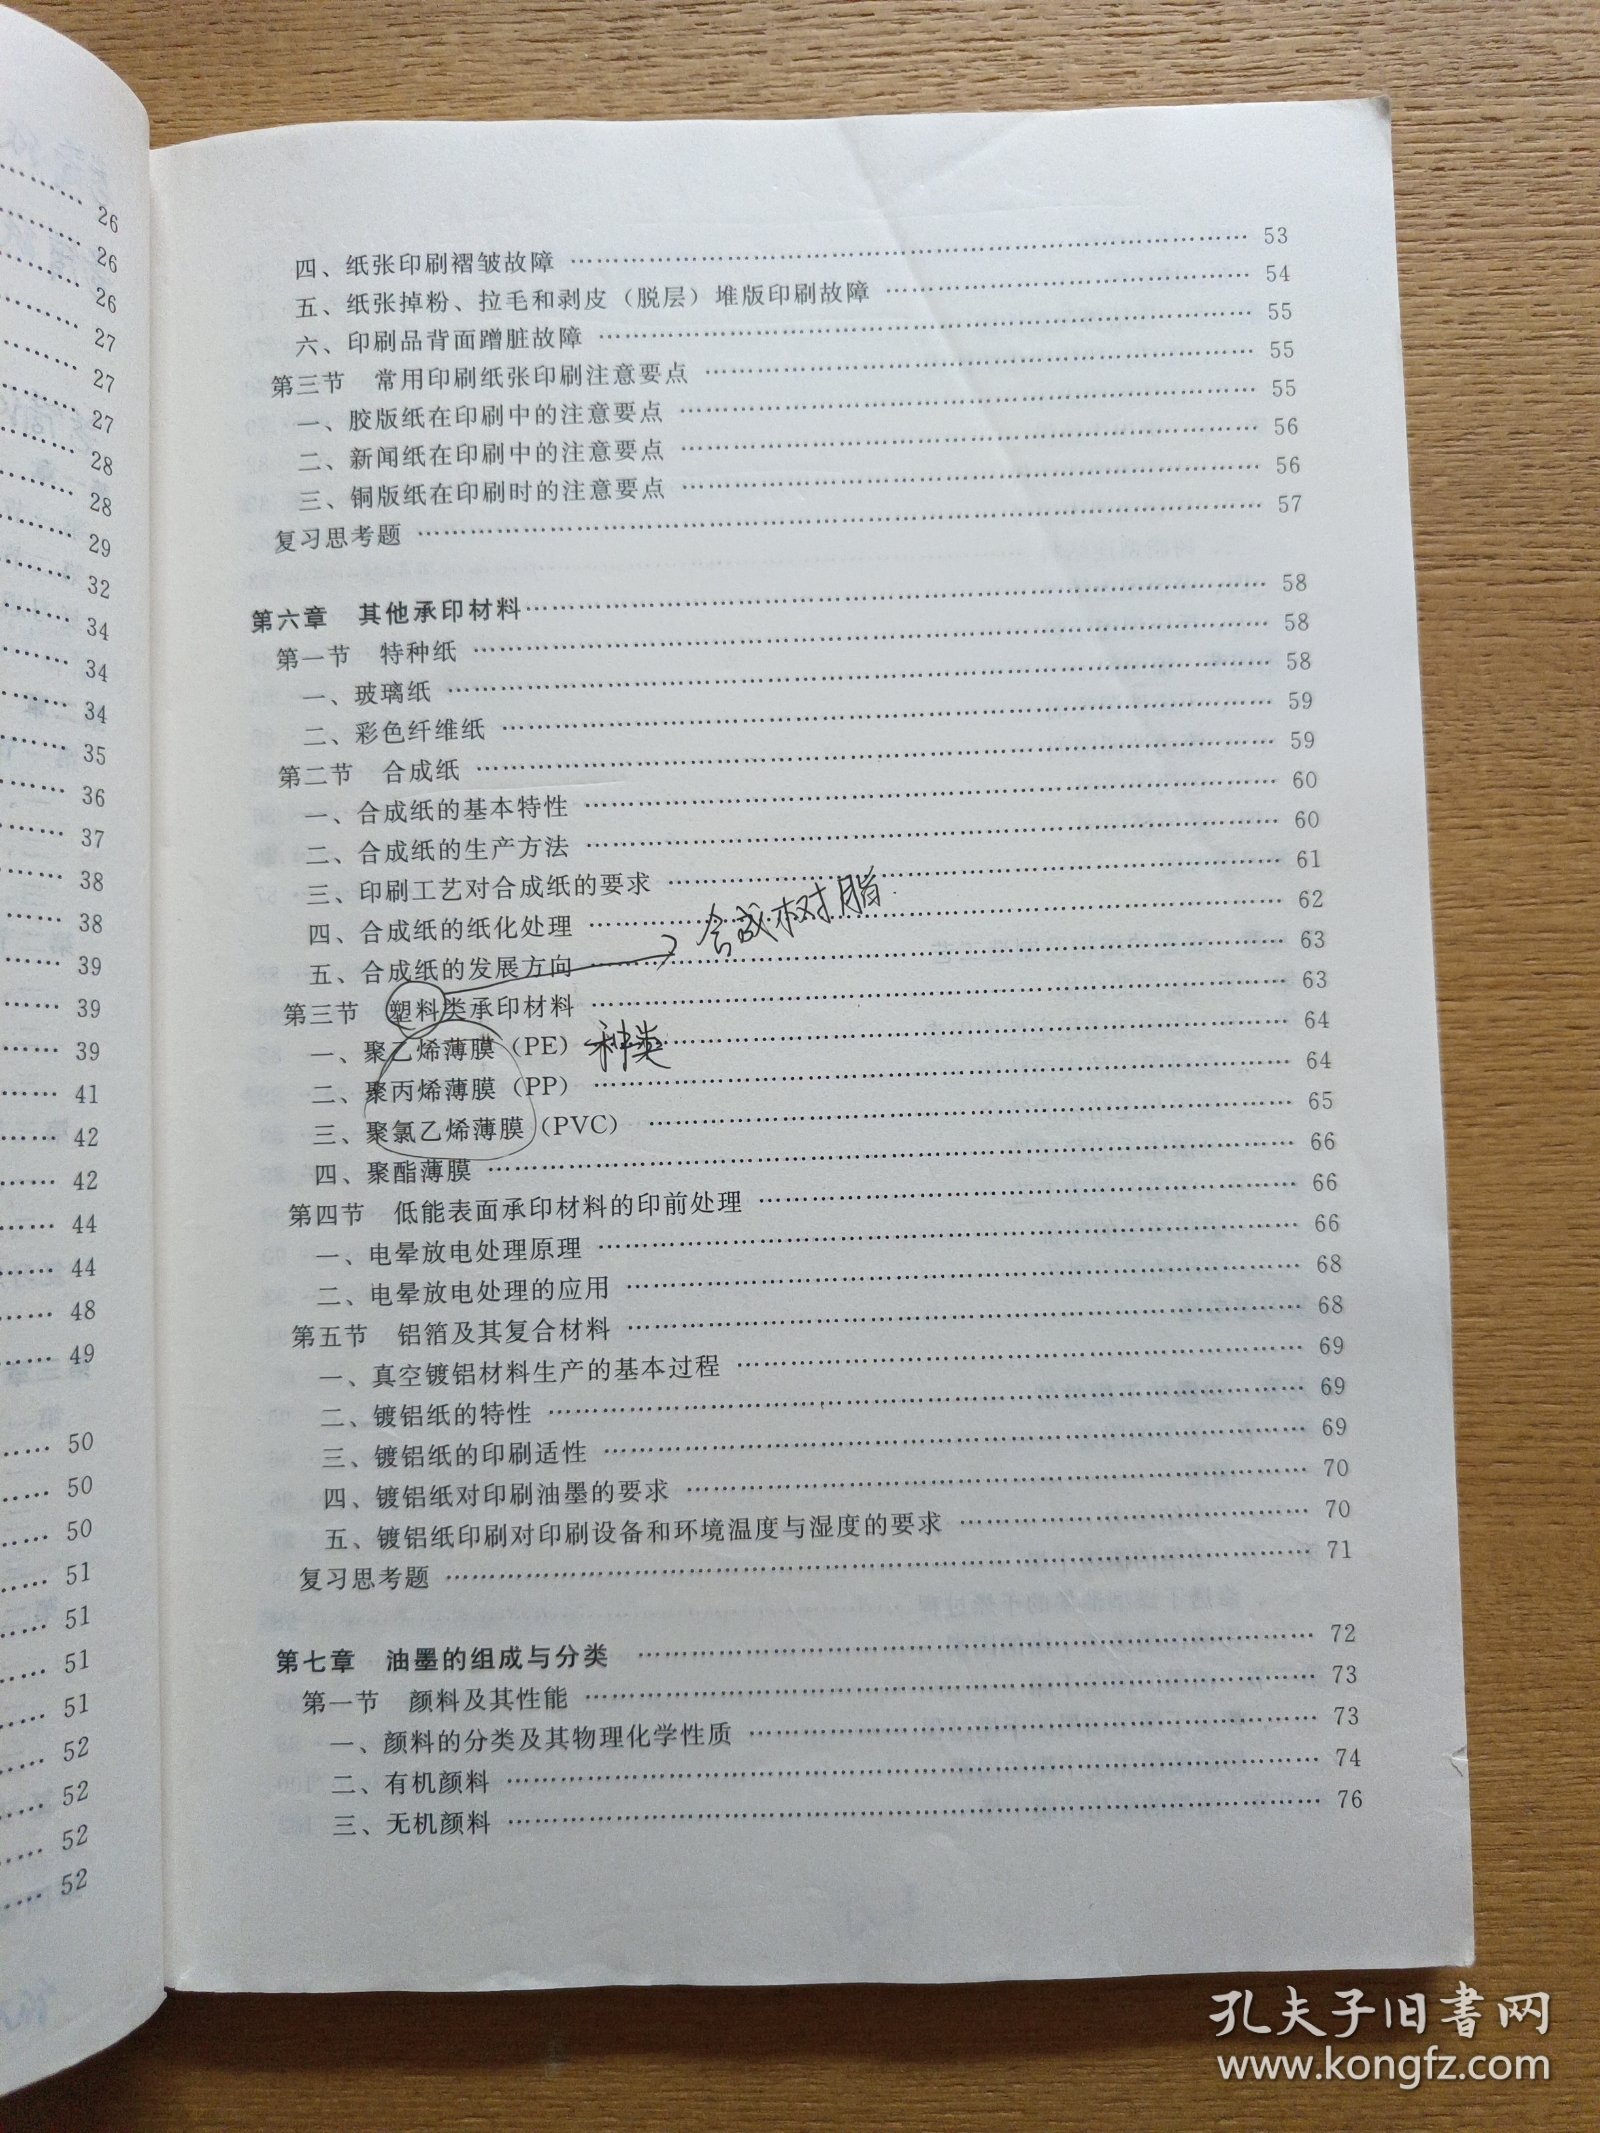 26
26
26
27
27
27
28
28
29
32
34
34
34
35
36
37
38
38
39
39
39
41
42
42
44
44
48
49
50
50
50
51
51
51
51
52
52
52
52
四、纸张印刷褶皱故障 …… 53
五、纸张掉粉、拉毛和剥皮（脱层）堆版印刷故障 …… 54
六、印刷品背面蹭脏故障 …… 55
第三节 常用印刷纸张印刷注意要点 …… 55
一、胶版纸在印刷中的注意要点 …… 55
二、新闻纸在印刷中的注意要点 …… 56
三、铜版纸在印刷时的注意要点 …… 56
复习思考题 …… 57
第六章 其他承印材料 …… 58
第一节 特种纸 …… 58
一、玻璃纸 …… 58
二、彩色纤维纸 …… 59
第二节 合成纸 …… 59
一、合成纸的基本特性 …… 60
二、合成纸的生产方法 …… 60
三、印刷工艺对合成纸的要求 …… 61
四、合成纸的纸化处理 …… 62
合成树脂
五、合成纸的发展方向 …… 63
第三节 塑料类承印材料 …… 63
一、聚乙烯薄膜（PE） 种类 …… 64
二、聚丙烯薄膜（PP） …… 64
三、聚氯乙烯薄膜（PVC） …… 65
四、聚酯薄膜 …… 66
第四节 低能表面承印材料的印前处理 …… 66
一、电晕放电处理原理 …… 66
二、电晕放电处理的应用 …… 68
第五节 铝箔及其复合材料 …… 68
一、真空镀铝材料生产的基本过程 …… 69
二、镀铝纸的特性 …… 69
三、镀铝纸的印刷适性 …… 69
四、镀铝纸对印刷油墨的要求 …… 70
五、镀铝纸印刷对印刷设备和环境温度与湿度的要求 …… 70
复习思考题 …… 71
第七章 油墨的组成与分类 …… 72
第一节 颜料及其性能 …… 73
一、颜料的分类及其物理化学性质 …… 73
二、有机颜料 …… 74
三、无机颜料 …… 76
孔夫子旧书网
www.kongfz.com